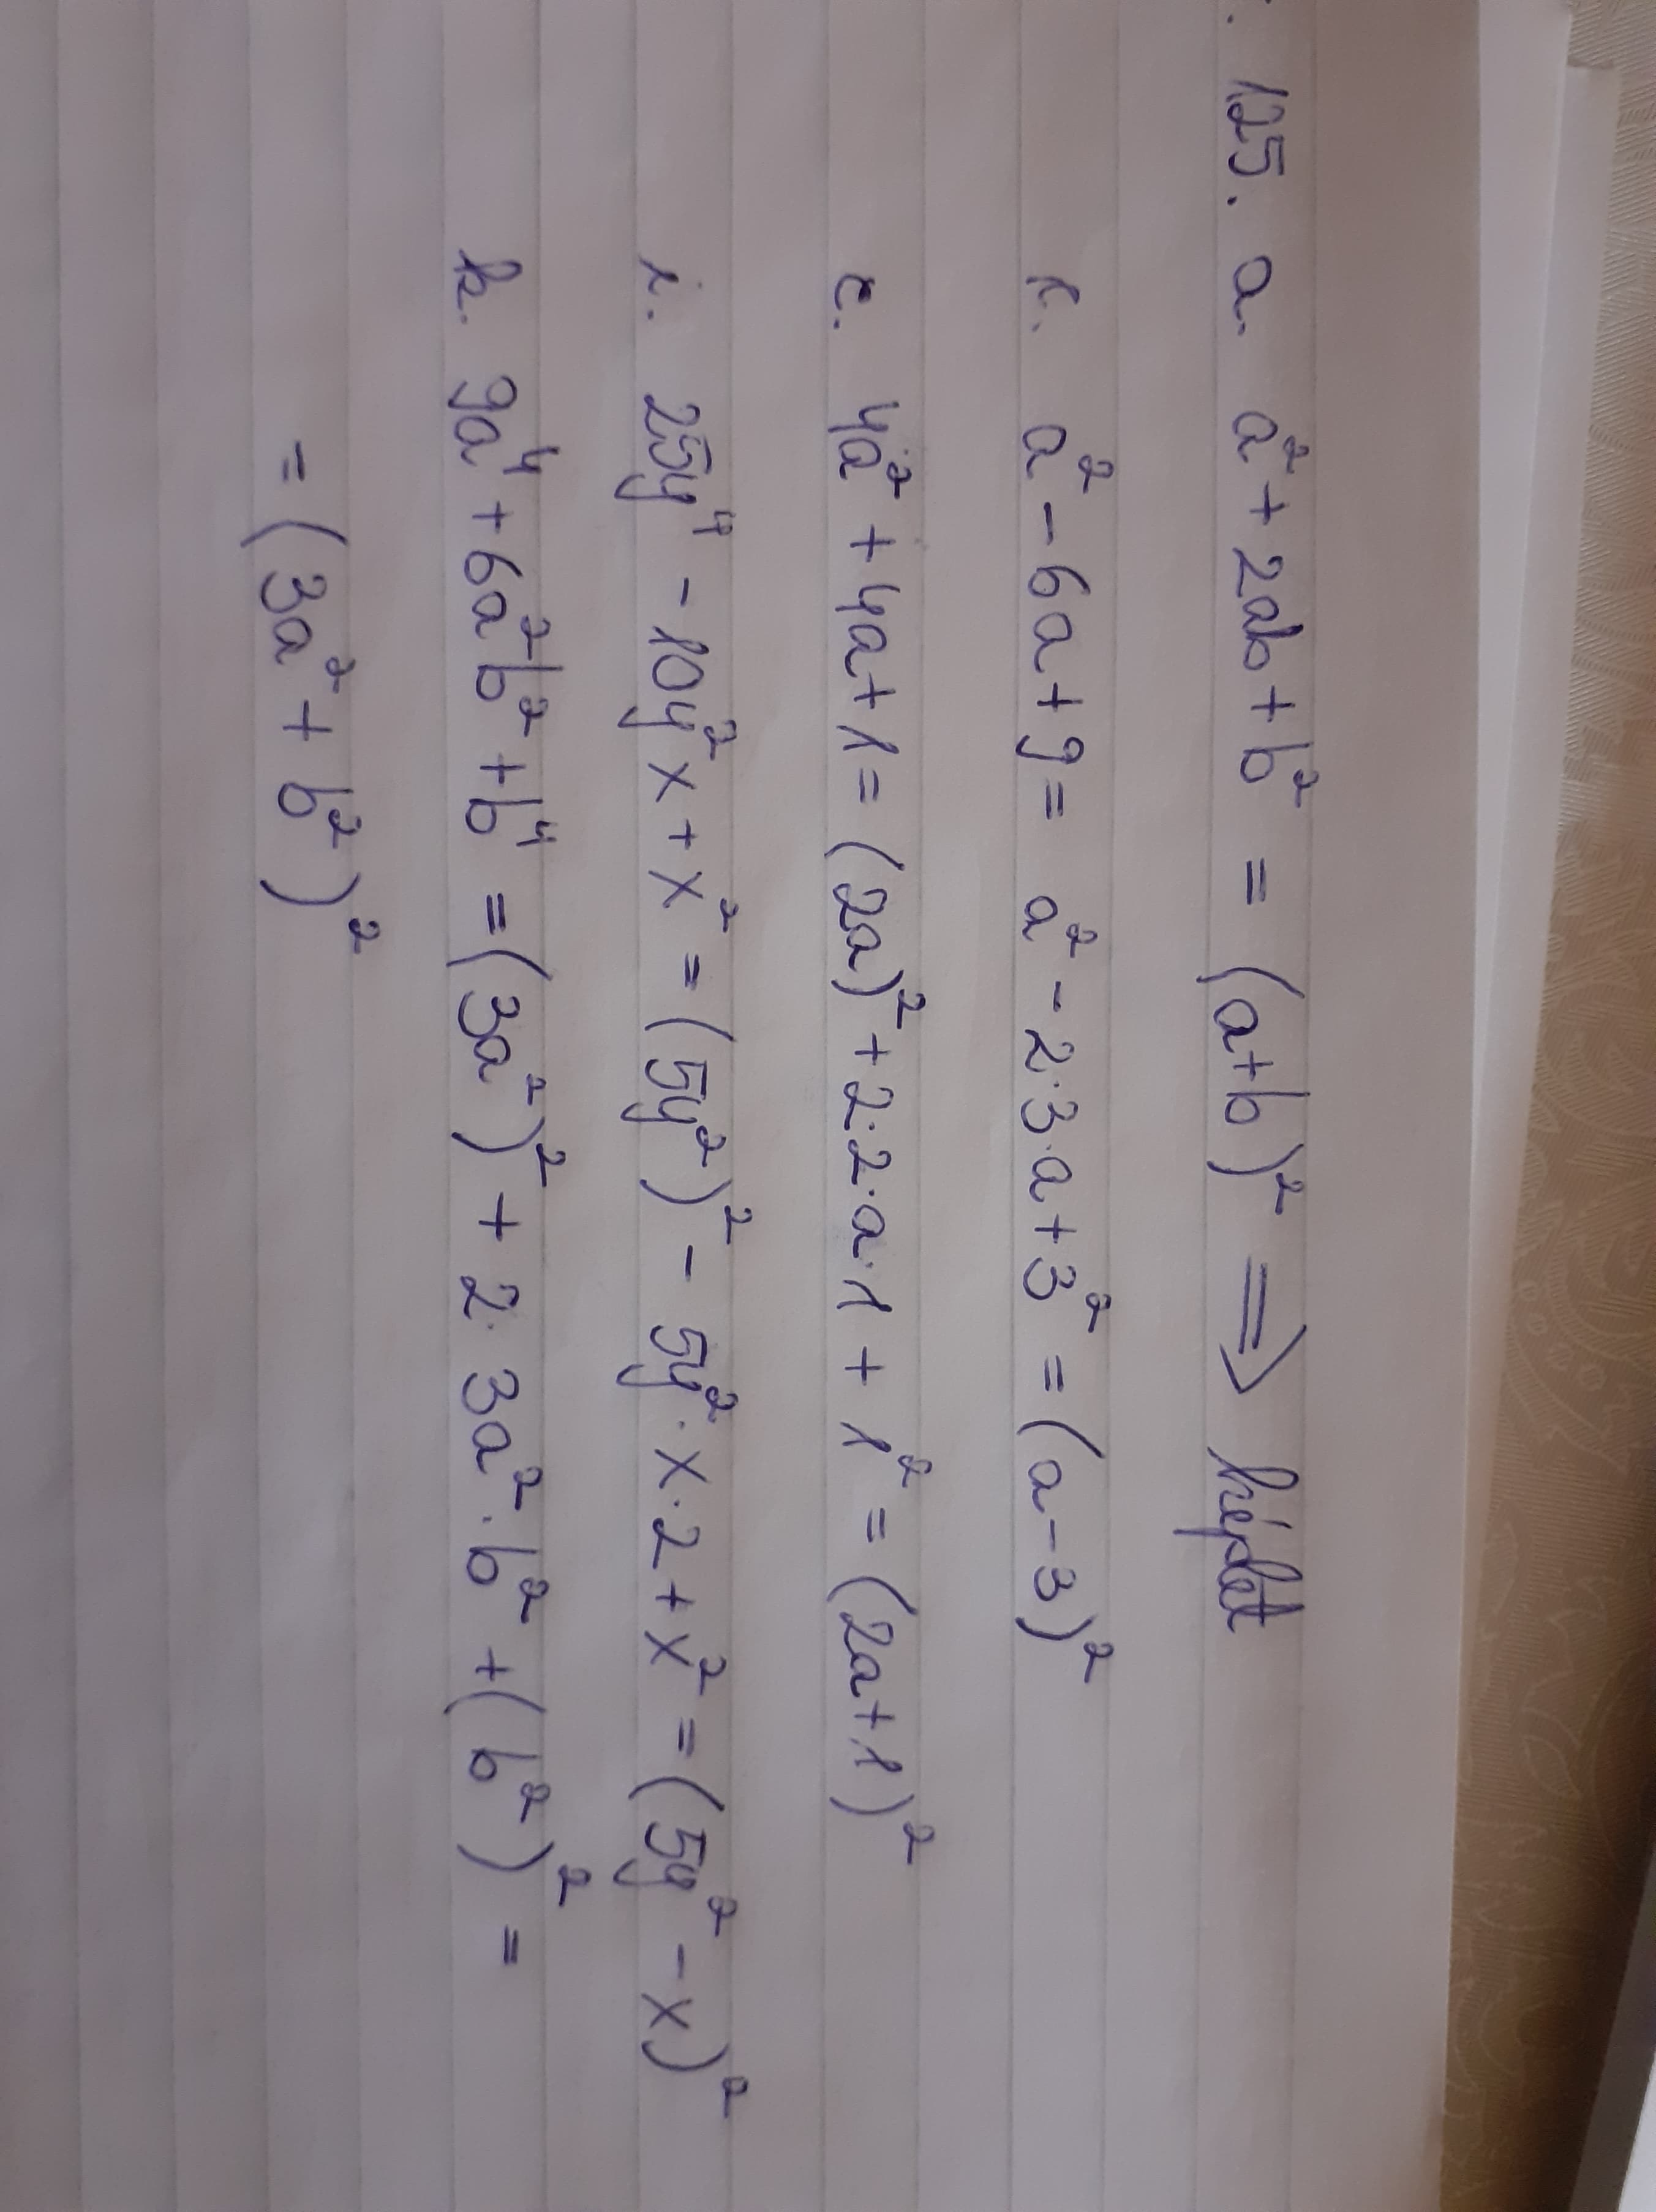 125. a. a² + 2ab + b² = (a+b)² ⟹ képlet
c. a² - 6a + 9 = a² - 2·3·a + 3² = (a-3)²
e. 4a² + 4a + 1 = (2a)² + 2·2·a·1 + 1² = (2a+1)²
i. 25y⁴ - 10y²x + x² = (5y²)² - 5y²·x·2 + x² = (5y² - x)²
k. 9a⁴ + 6a²b² + b⁴ = (3a²)² + 2·3a²·b² + (b²)² =
= (3a² + b²)²